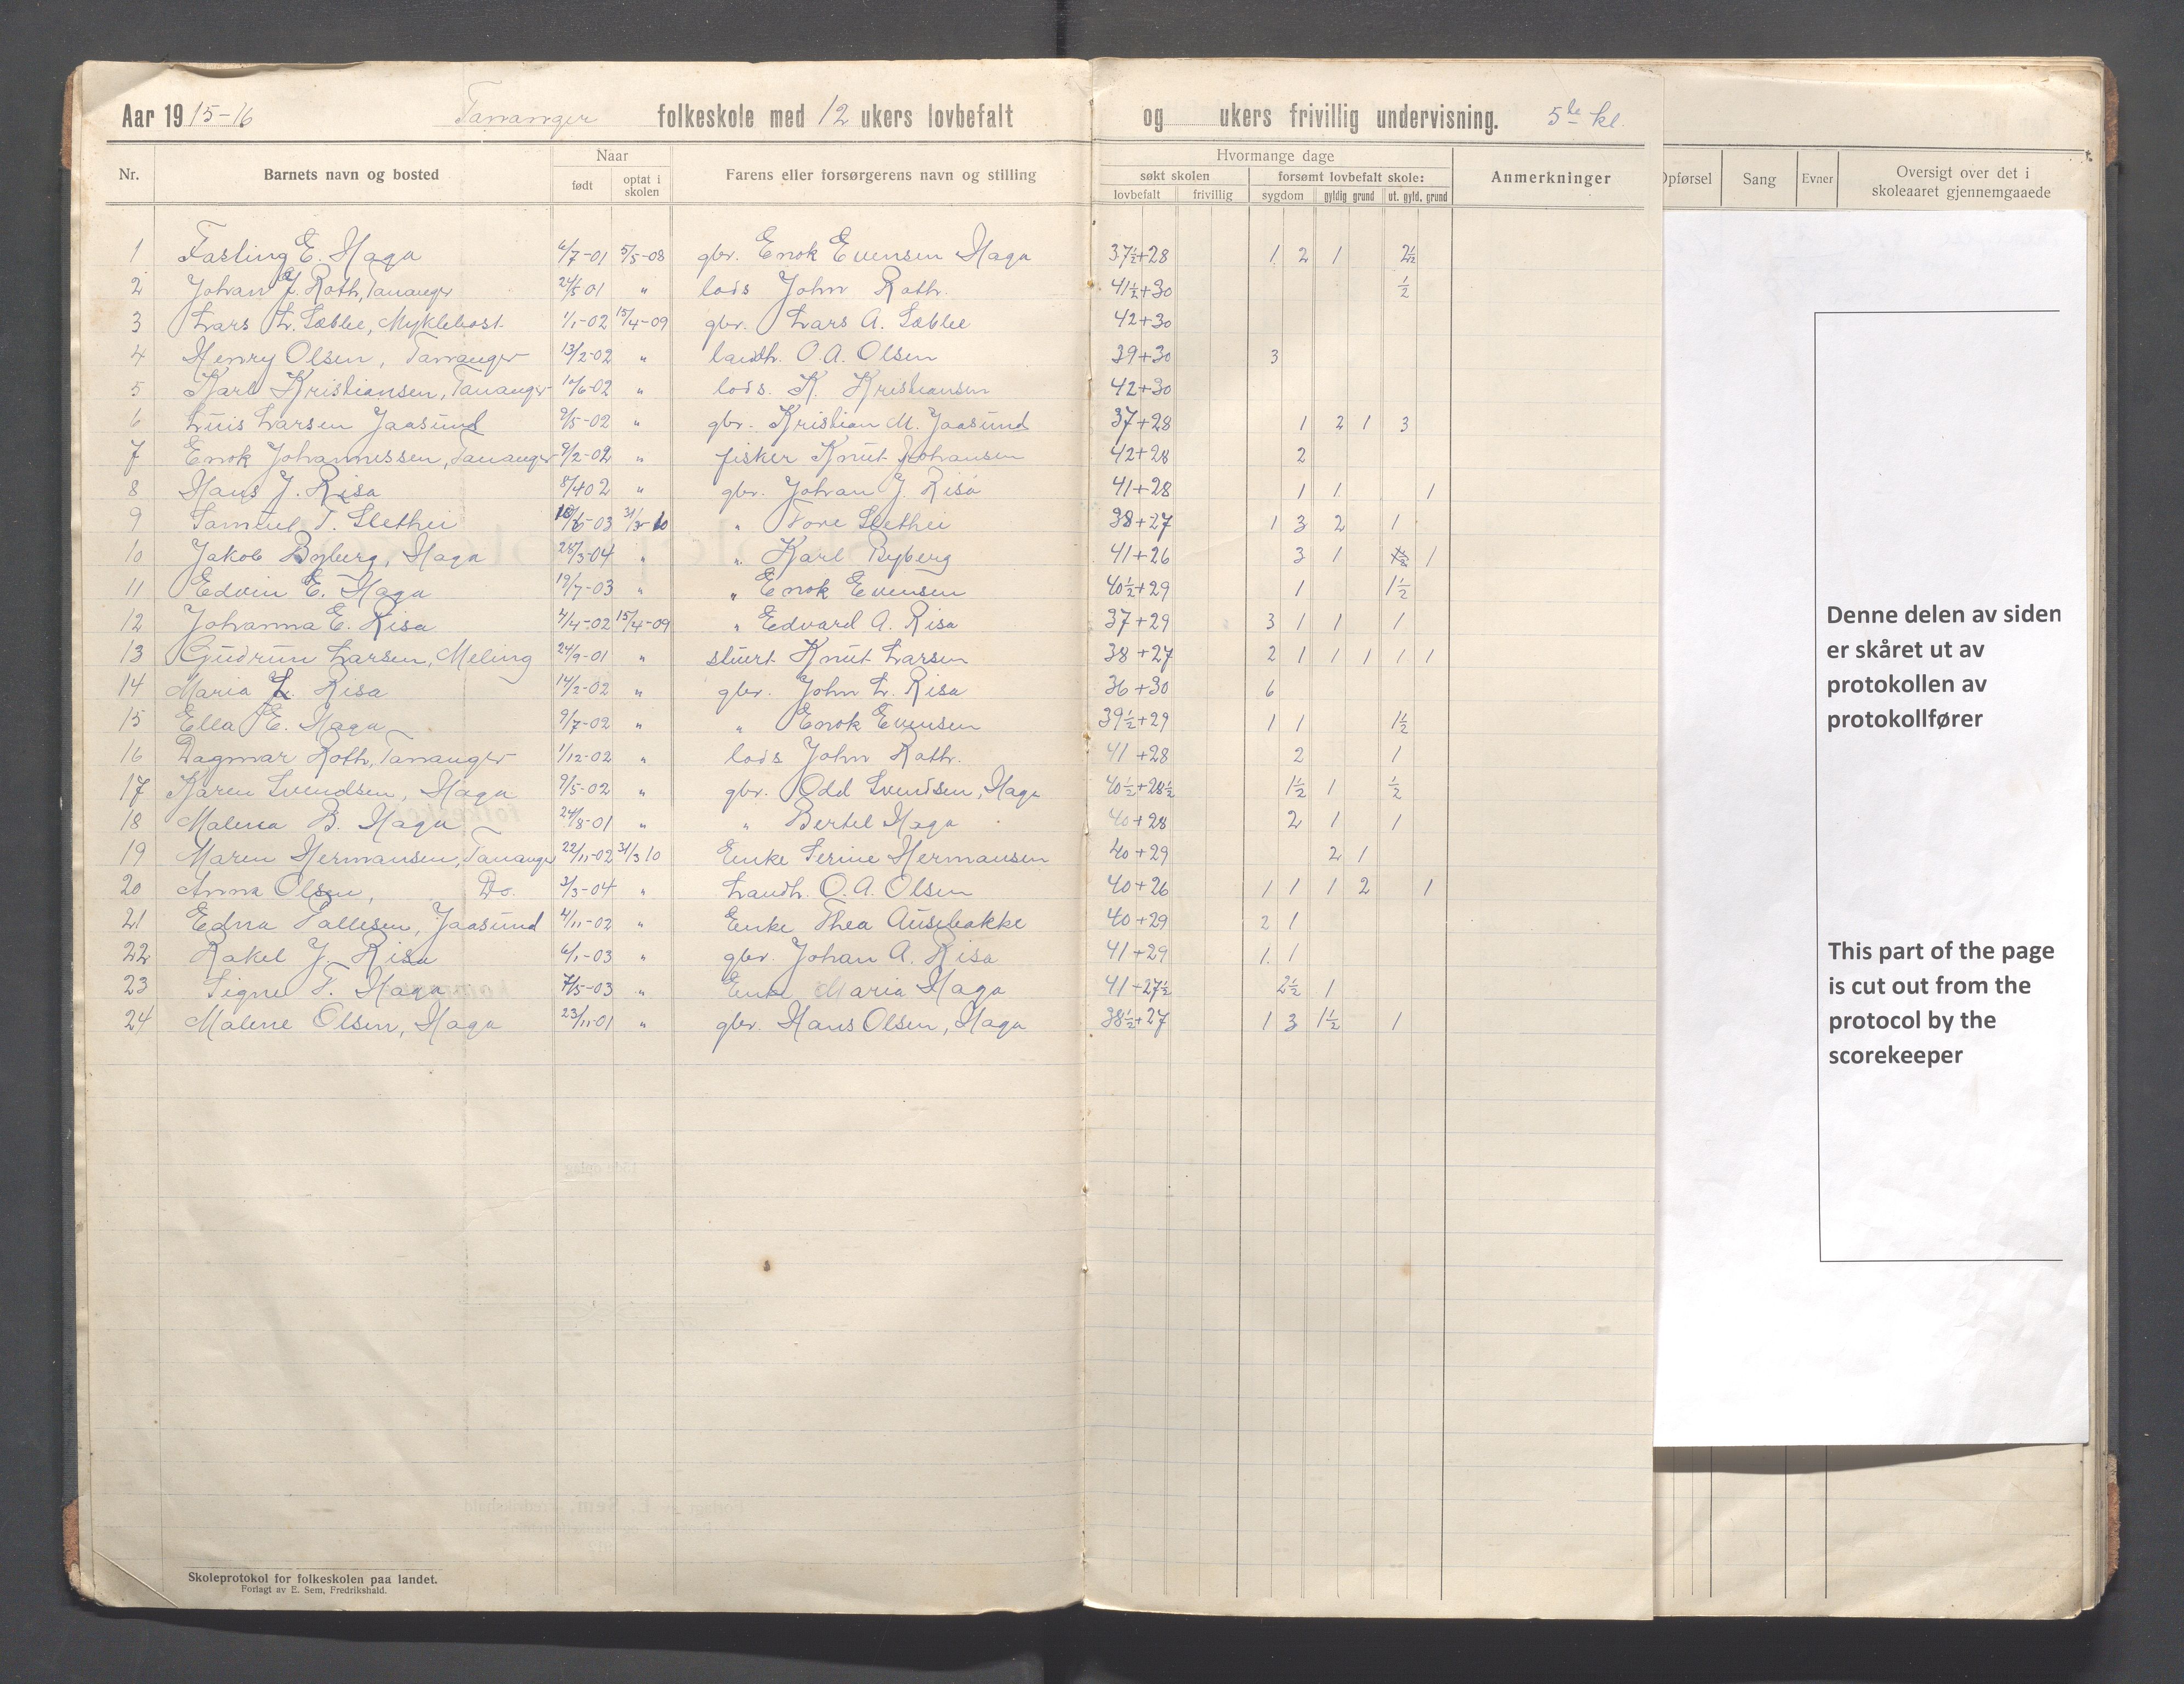 Aar 1915-16 Tananger folkeskole med 12 ukers lovbefalt og ukers frivillig undervisning. 5te kl.
Nr. Barnets navn og bosted Naar født optat i skolen Farens eller forsørgerens navn og stilling Hvormange dage søkt skolen lovbefalt frivillig forsømt lovbefalt skole: sygdom gyldig grund ut. gyld. grund Anmerkninger
Opførsel Sang Evner Oversigt over det i skoleaaret gjennemgaaede
1 E. Haga 6/7-01 5/5-08 gbr. Enok Evensen Haga 37½+28 1 2 1 2½
2 Johan J. Roth, Tananger 24/5 01 " lods John Roth. 41½+30 ½
3 Lars L. Sæblee, Myklebost 1/1-02 15/4-09 gbr. Lars A. Sæblee 42+30
4 Henry Olsen, Tananger 13/2-02 " landh. O. A. Olsen 39+30 3
5 Karl Kristiansen, Tananger /6-02 " lods. K. Kristiansen 42+30
6 Luis Larsen Jaasund 9/5-02 " gbr. Kristian M. Jaasund 37+28 1 2 1 3
7 Enok Johannessen, Tananger 9/2-02 " fisker Knut Johansen 42+28 2
8 Hans J. Risa 8/4 02 " gbr. Johan J. Risa 41+28 1 1 1
9 Samuel T. Slethei /6-03 31/3-10 " Tore Slethei 38+27 1 3 2 1
10 Jakob Byberg, Haga 28/3-04 " " Karl Ryberg 41+26 3 1 1
11 Edvin E. Haga 19/7-03 " " Enok Evensen 40½+29 1 1½
12 Johanna E. Risa 4/4-02 15/4-09 " Edvard A. Risa 37+29 3 1 1 1
13 Gudrun Larsen, Meling 24/9-01 " stuert Knut Larsen 38+27 2 1 1 1 1 1
14 Maria L. Risa 14/2-02 " gbr. John L. Risa 36+30 6
15 Ella E. Haga 9/7-02 " " Enok Evensen 39½+29 1 1 1½
16 Dagmar Roth, Tananger 1/12-02 " lods John Roth. 41+28 2 1
17 Karen Svendsen, Haga 9/5-02 " gbr. Odd Svendsen, Haga 40½+28½ 1½ 1 ½
18 Malena B. Haga 24/8-01 " " Bertel Haga 40+28 2 1 1
19 Maren Hermansen, Tananger 22/11-02 31/3 10 Enke Serine Hermansen 40+29 2 1
20 Anna Olsen, Do. 3/3-04 " Landh. O. A. Olsen 40+26 1 1 1 2 1
21 Edna Tallesen, Jaasund 4/11-02 " Enke Thea Ausebakke 40+29 2 1
22 Rakel J. Risa 6/1-03 " gbr. Johan A. Risa 41+29 1. 1
23 Signe T. Haga 7/5-03 " Enke Maria Haga 41+27½ 2½ 1
24 Malene Olsen, Haga 23/11-01 " gbr. Hans Olsen, Haga 38½+27 1 3 1½ 1
Denne delen av siden
er skåret ut av
protokollen av
protokollfører
This part of the page
is cut out from the
protocol by the
scorekeeper
Skoleprotokol for folkeskolen paa landet.
Forlagt av E. Sem, Fredrikshald.